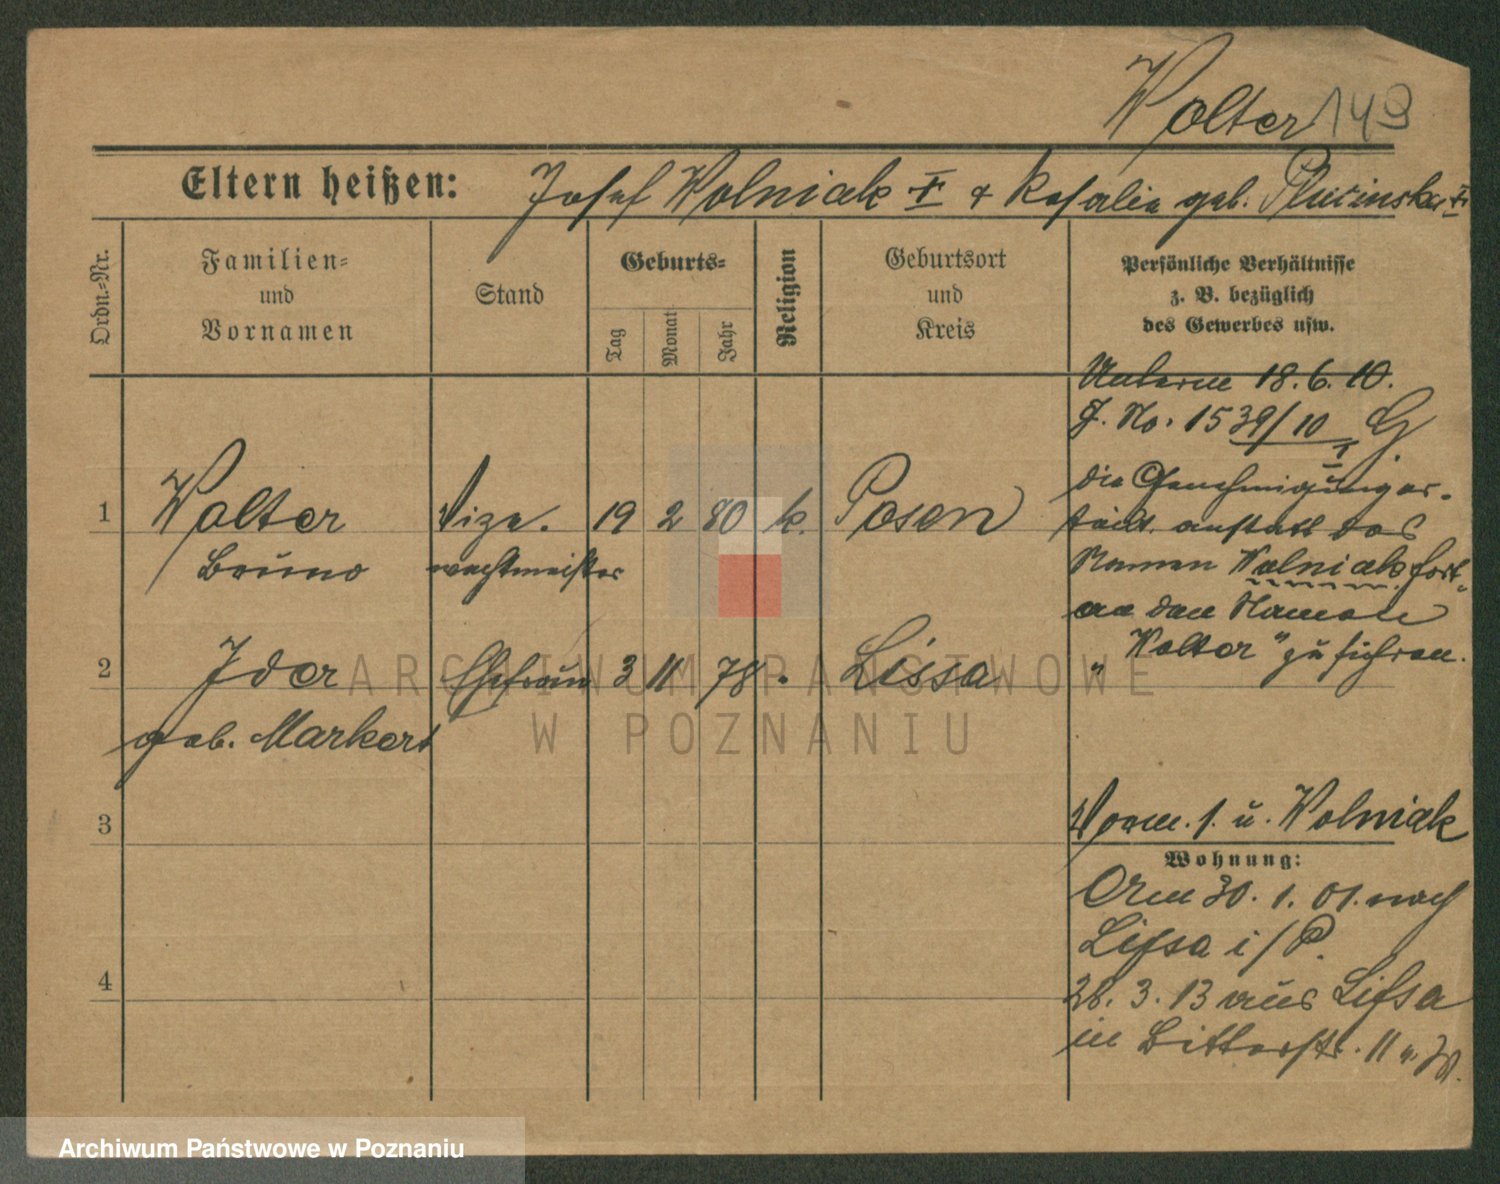 Wolter 149
Eltern heißen: Josef Wolniak † & Rosalie geb. Plucinska †
Ordn.-Nr.
Familien-
und
Vornamen
Stand
Geburts-
Tag
Monat
Jahr
Religion
Geburtsort
und
Kreis
Persönliche Verhältnisse
z. B. bezüglich
des Gewerbes usw.
Unterm 18. 6. 10.
J. No. 1539/10 G.
die Genehmigung er-
teilt, anstatt des
Namen Wolniak fort-
an den Namen
"Wolter" zu führen.
1 Wolter Vize- 19 2 80 k. Posen
Bruno wachtmeister
2 Ida Ehefrau 3 11 78 . Lissa
geb. Markert
3
4
Verm. 1. u. Wolniak
Wohnung:
Am 30. 1. 01. nach
Lissa i/P.
28. 3. 13 aus Lissa
in 11
ARCHIWUM PAŃSTWOWE
W POZNANIU
Archiwum Państwowe w Poznaniu